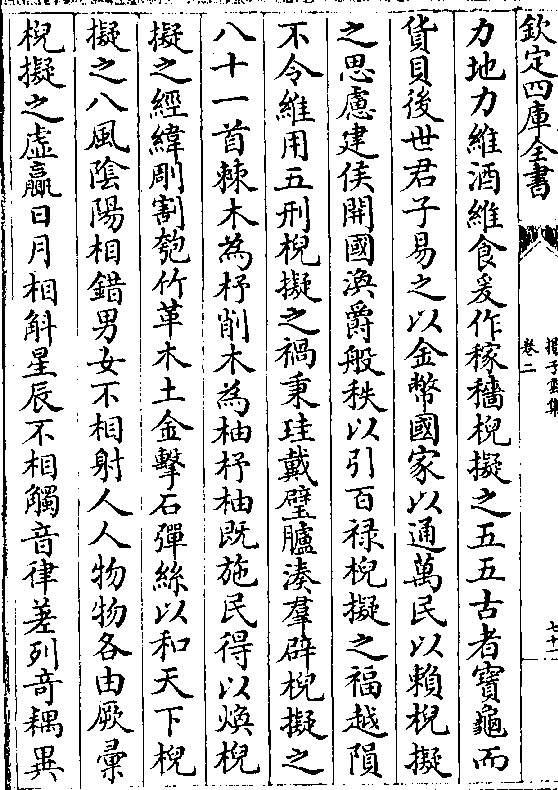 欽定四庫全書
揚子雲集
卷二
力地力維酒維食爰作稼穡棿擬之五五古者寶龜而
貨貝後世君子易之以金幣國家以通萬民以賴棿擬
之思慮建侯開國渙爵般秩以引百禄棿擬之福越隕
不令維用五刑棿擬之禍秉珪戴璧臚湊羣辟棿擬之
八十一首棘木為杼削木為柚杼柚既施民得以煥棿
擬之經緯剛割匏竹革木土金擊石彈絲以和天下棿
擬之八風陰陽相錯男女不相射人人物物各由厥彚
棿擬之虛贏日月相斛星辰不相觸音律差列奇耦異